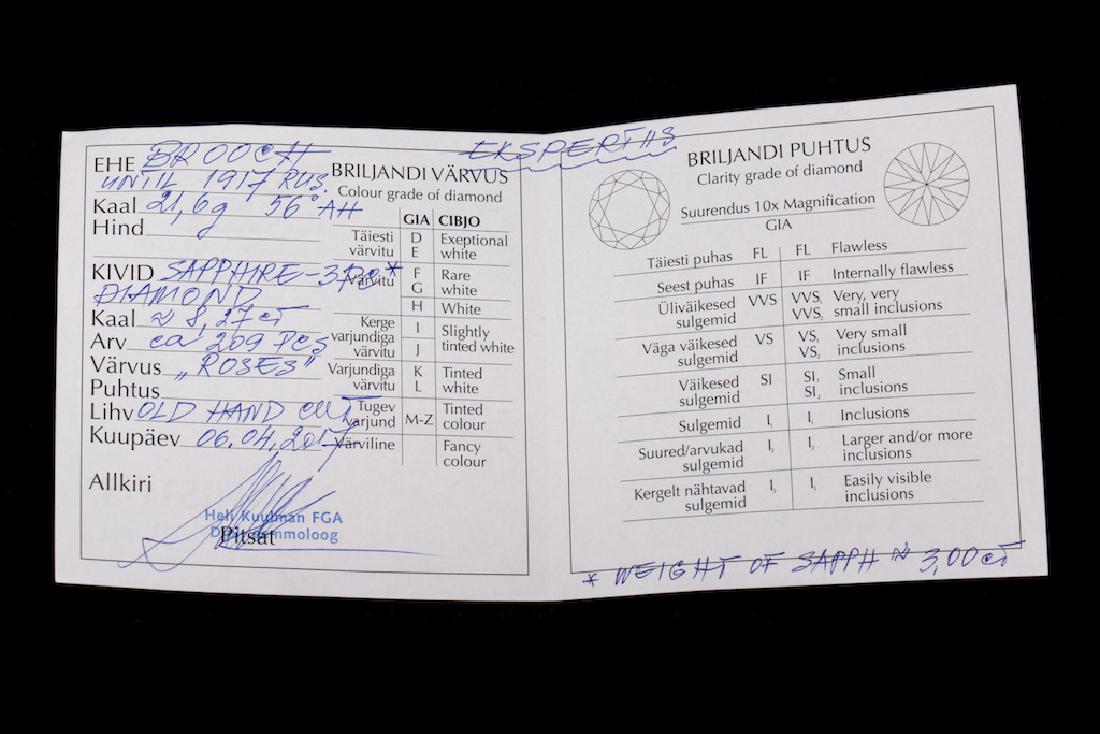 EKSPERTIIS
EHE BROOCH
UNTIL 1917 RUS.
Kaal 21,6g 56° AH
Hind
KIVID SAPPHIRE-3PC*
DIAMOND
Kaal ≈ 8,27 ct
Arv ca 209 PCS
Värvus „ROSES"
Puhtus
Lihv OLD HAND CUT
Kuupäev 06.04.2017
Allkiri
Heli Kuulman FGA
Pitsat
BRILJANDI VÄRVUS
Colour grade of diamond
GIA CIBJO
Täiesti värvitu D E Exeptional white
Värvitu F G Rare white
H White
Kerge varjundiga värvitu I J Slightly tinted white
Varjundiga värvitu K L Tinted white
Tugev varjund M-Z Tinted colour
Värviline Fancy colour
BRILJANDI PUHTUS
Clarity grade of diamond
Suurendus 10x Magnification
GIA
Täiesti puhas FL FL Flawless
Seest puhas IF IF Internally flawless
Üliväikesed sulgemid VVS VVS₁ VVS₂ Very, very small inclusions
Väga väikesed sulgemid VS VS₁ VS₂ Very small inclusions
Väikesed sulgemid SI SI₁ SI₂ Small inclusions
Sulgemid I₁ I₁ Inclusions
Suured/arvukad sulgemid I₂ I₂ Larger and/or more inclusions
Kergelt nähtavad sulgemid I₃ I₃ Easily visible inclusions
* WEIGHT OF SAPPH ≈ 3,00 ct